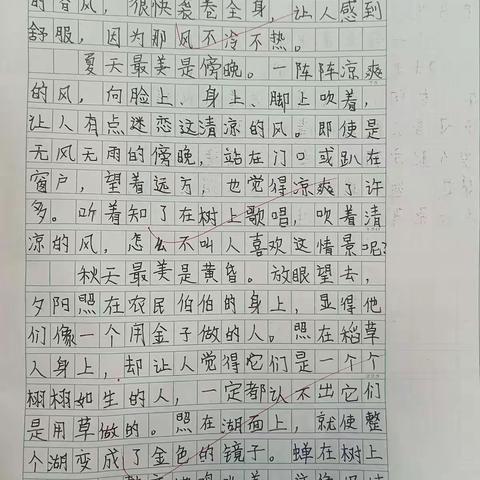 的春风，很快袭卷全身，让人感到
舒服，因为那风不冷不热。
夏天最美是傍晚。一阵阵凉爽
的风，向脸上、身上、脚上吹着，
让人有点迷恋这清凉的风。即使是
无风无雨的傍晚，站在门口或趴在
窗户，望着远方，也觉得凉爽了许
多。听着知了在树上歌唱，吹着清
凉的风，怎么不叫人喜欢这情景呢？
秋天最美是黄昏。放眼望去，
夕阳照在农民伯伯的身上，显得他
们像一个用金子做的人。照在稻草
人身上，却让人觉得它们是一个个
栩栩如生的人，一定都认不出它们
是用草做的。照在湖面上，就使整
个湖变成了金色的镜子。蝉在树上